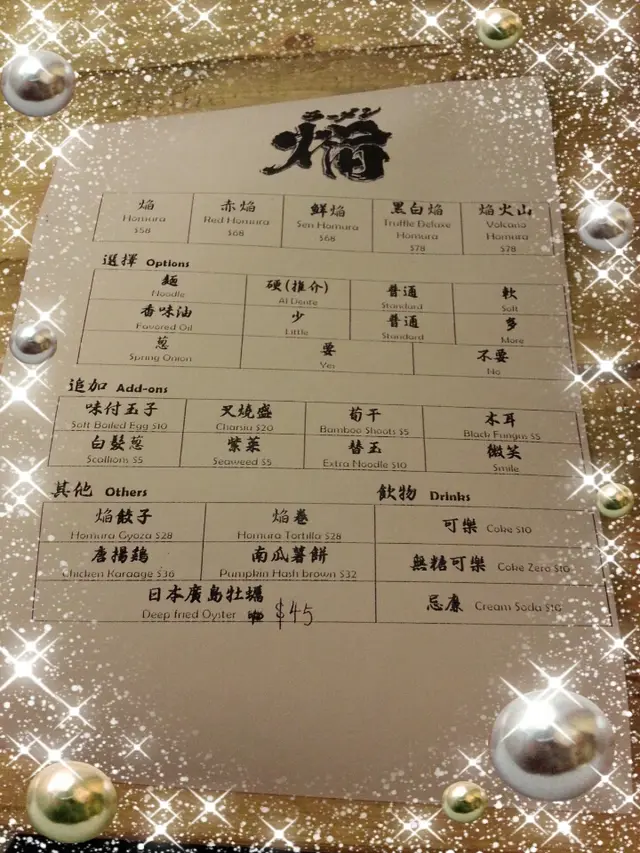 ラーメン
焔
焔 赤焔 鮮焔 黑白焔 焔火山
Homura Red Homura Sen Homura Truffle Deluxe Homura Volcano Homura
$58 $68 $68 $78 $78
選擇 Options
麵 硬(推介) 普通 軟
Noodle Al Dente Standard Soft
香味油 少 普通 多
Favored Oil Little Standard More
葱 要 不要
Spring Onion Yes No
追加 Add-ons
味付玉子 叉燒盛 荀干 木耳
Soft Boiled Egg $10 Charsiu $20 Bamboo Shoots $5 Black Fungus $5
白髮葱 紫菜 替玉 微笑
Scallions $5 Seaweed $5 Extra Noodle $10 Smile
其他 Others
焔餃子 焔卷
Homura Gyoza $28 Homura Tortilla $28
唐揚鷄 南瓜薯餅
Chicken Karaage $36 Pumpkin Hash brown $32
日本廣島牡蠣
Deep fried Oyster $45
飲物 Drinks
可樂 Coke $10
無糖可樂 Coke Zero $10
忌廉 Cream Soda $10